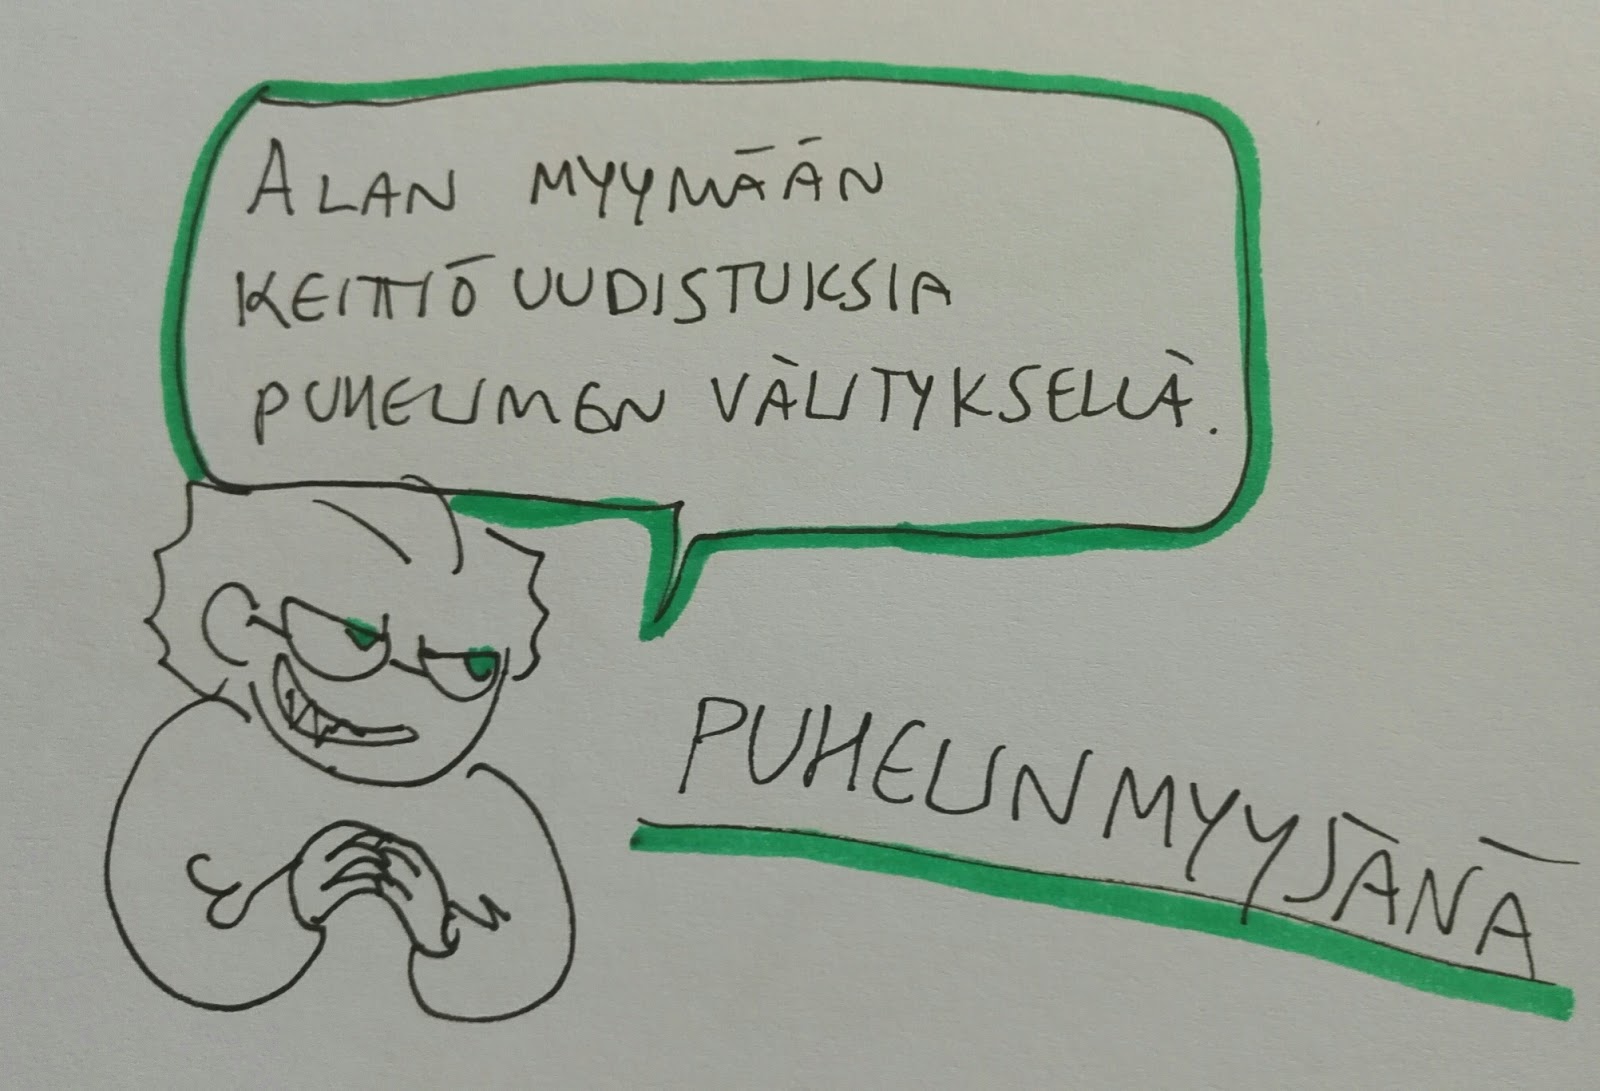 ALAN MYYMÄÄN
KEITTIÖUUDISTUKSIA
PUHELIMEN VÄLITYKSELLÄ.
PUHELINMYYJÄNÄ